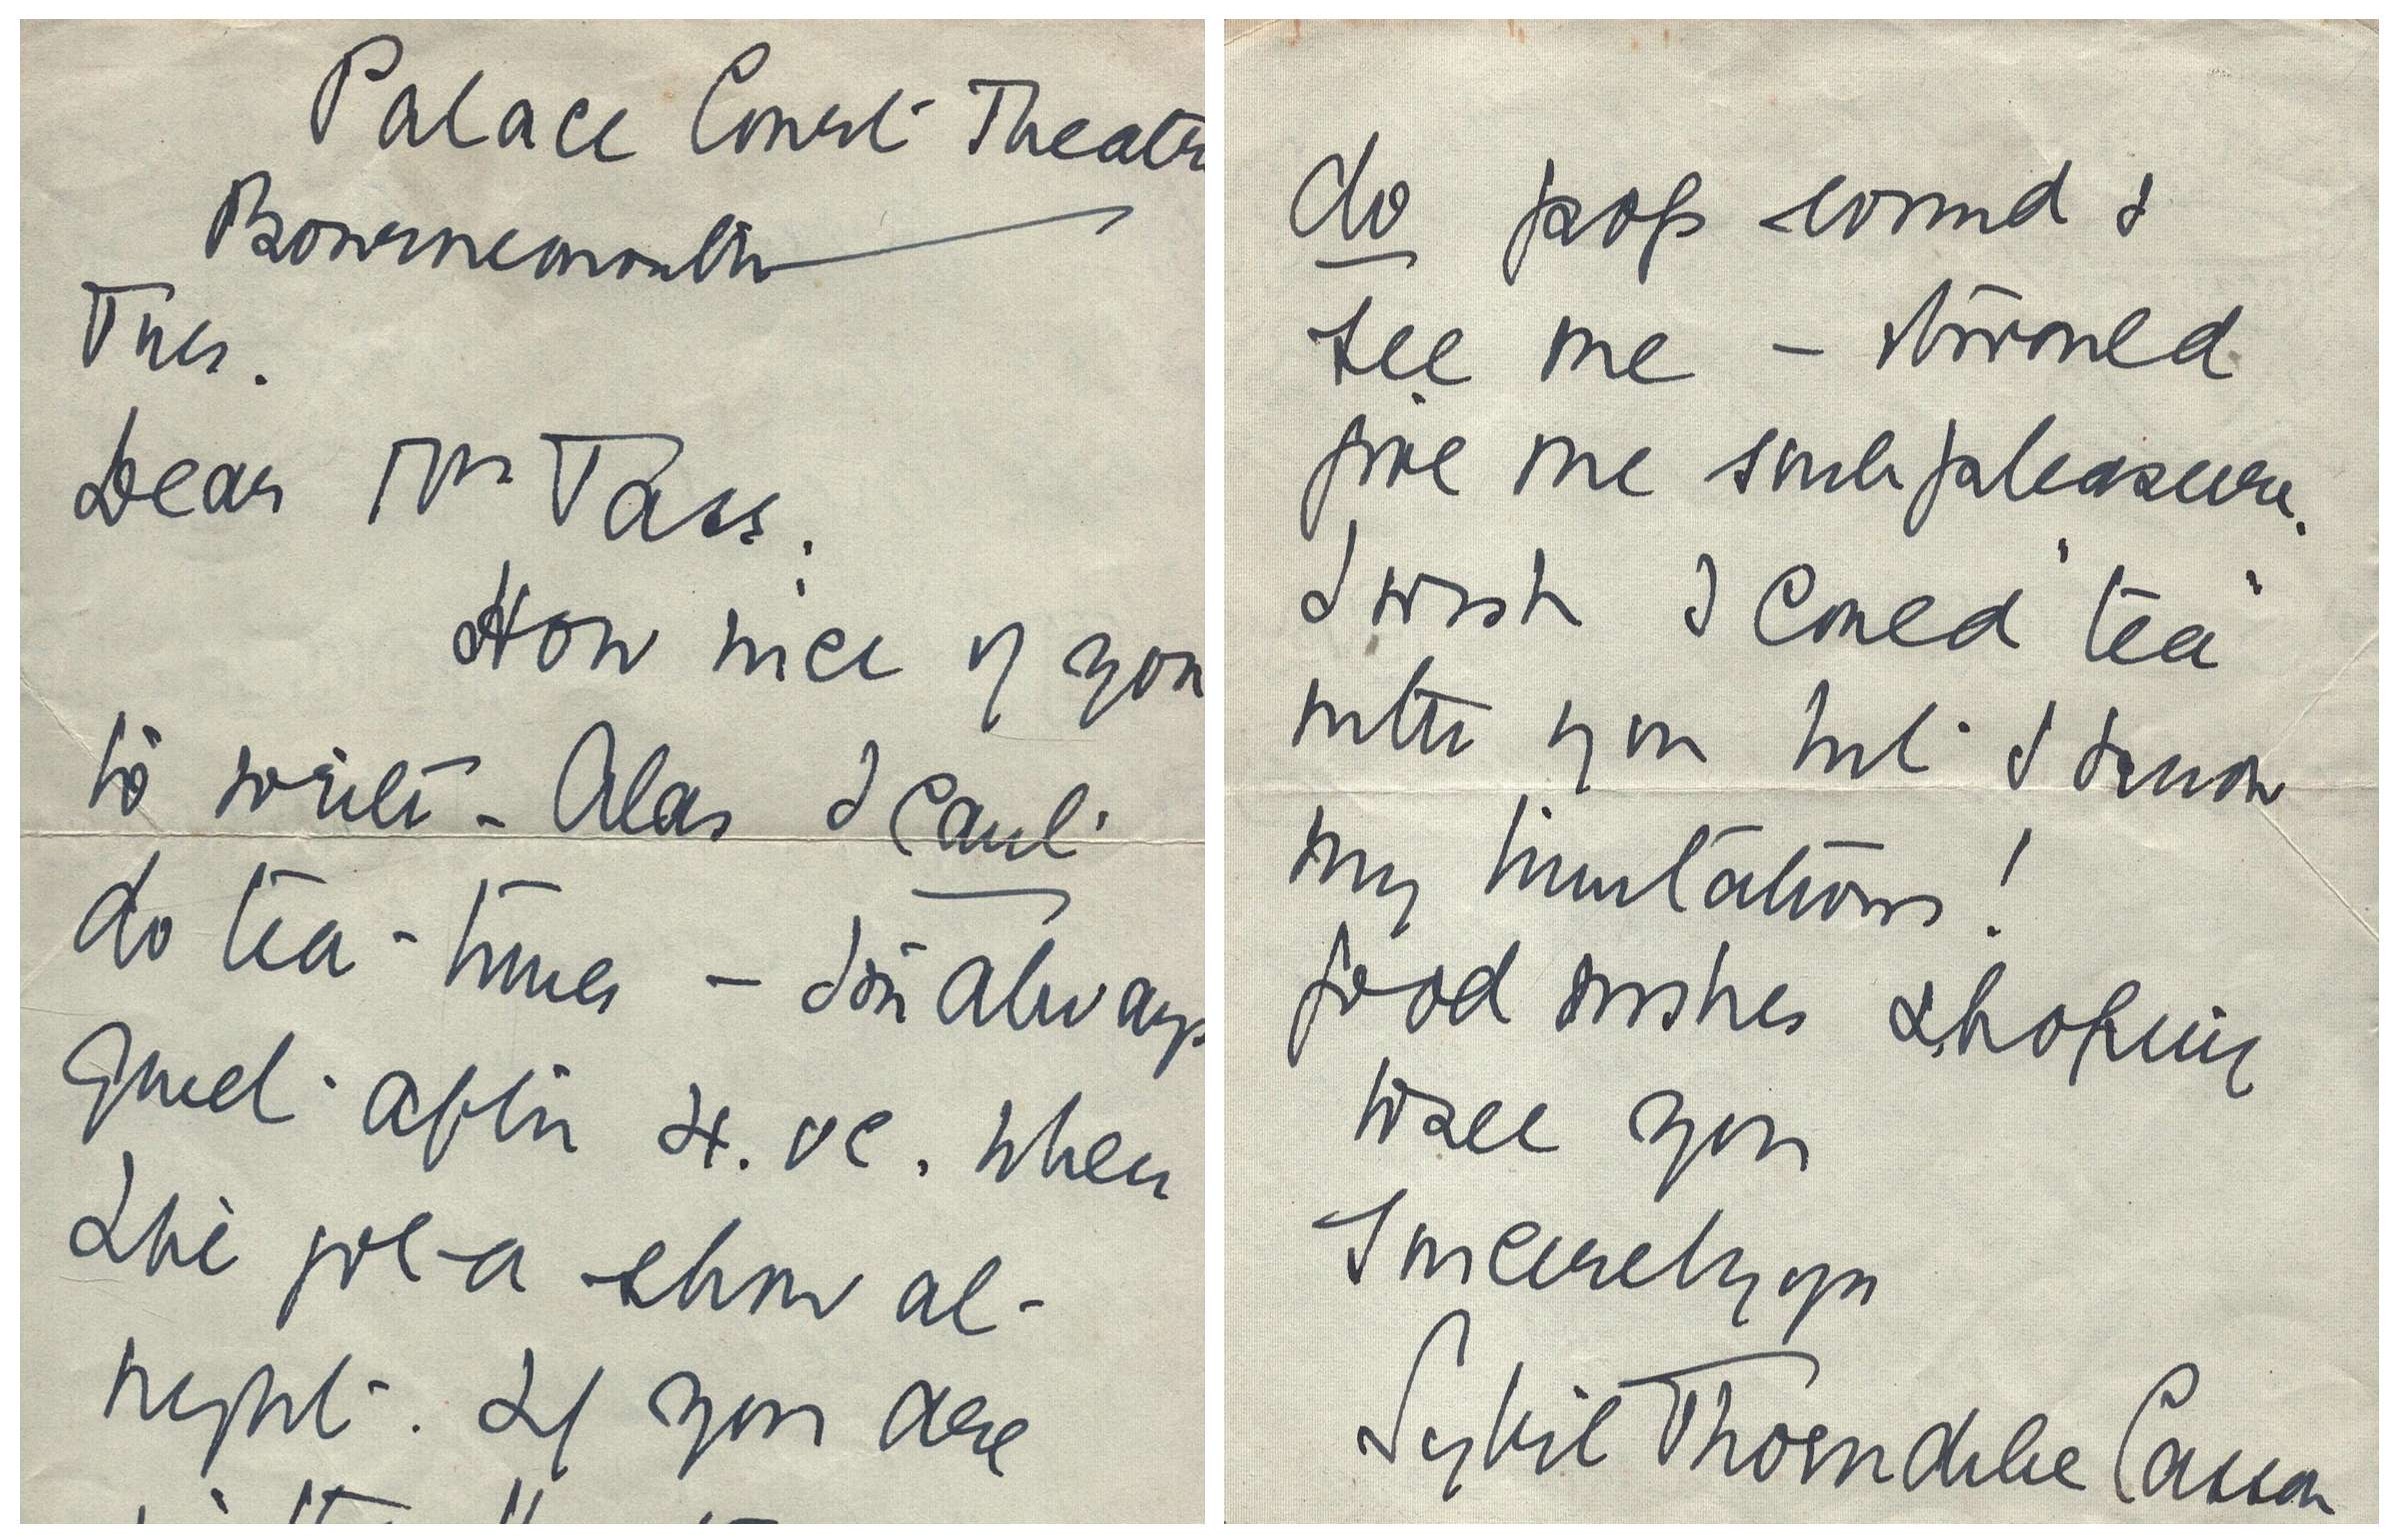 Palace Court Theatre
Bournemouth
Tues.
Dear Mr Tass.
How nice of you
to write - Alas I can't
do tea-times - I'm always
quiet after 4. oc. when
I've got a show at
night. If you are
do pop round &
see me - it would
give me such pleasure.
I wish I could "tea"
with you but I know
my limitations!
Good wishes & hoping
to see you
Sincerely yrs
Sybil Thorndike Casson